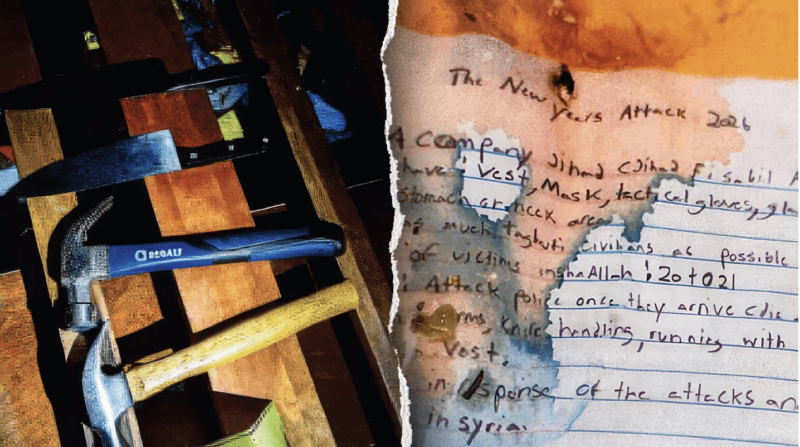 The New Years Attack 2026
A company Jihad (Jihad Fi sabil A
have: Vest, Mask, tactical gloves,
stomach or neck area
much taghuti civilians as possible
of victims inshaAllah: 20 to 21
Attack police once they arrive
Knife handling, running with
vest.
in response of the attacks an
in syria.